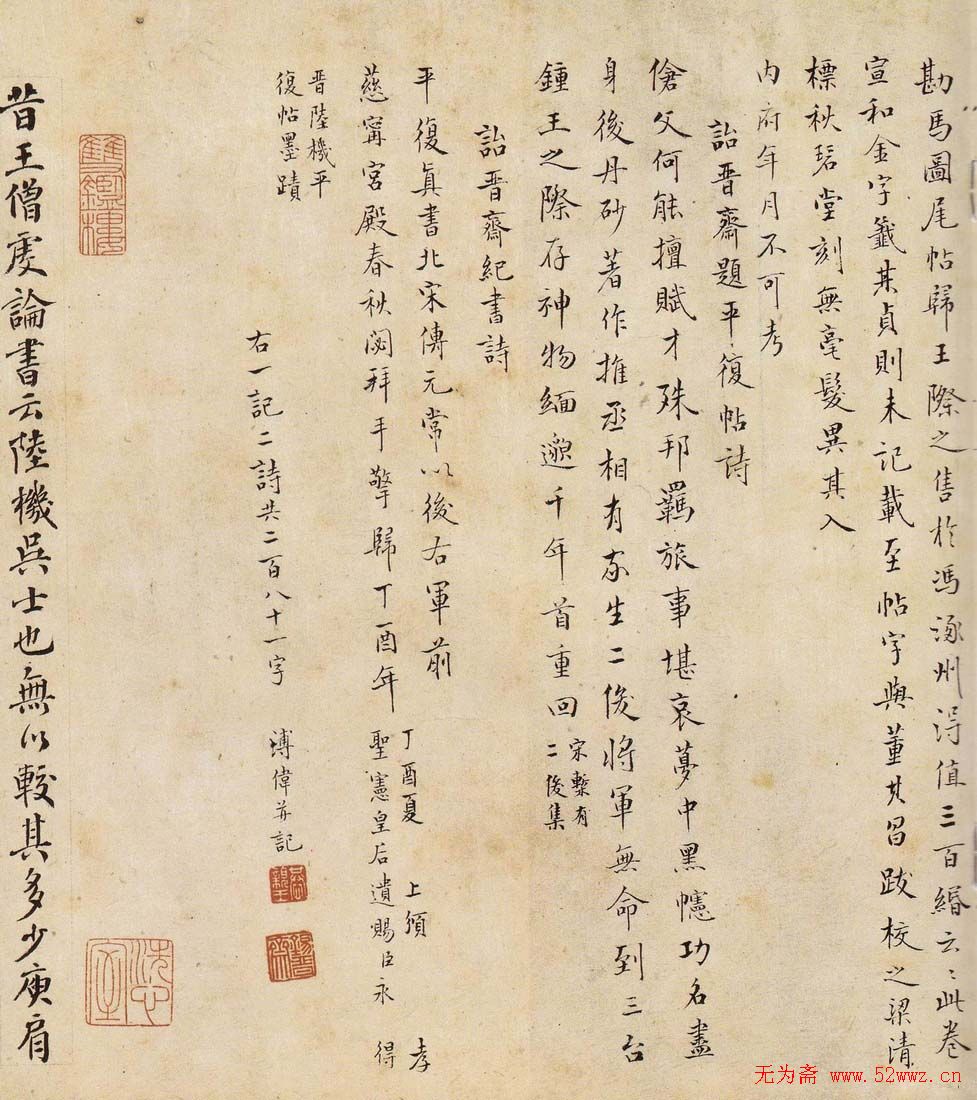 勘馬圖尾帖歸王際之售於馮涿州得值三百緡云〻此卷
宣和金字籤某貞則未記載至帖字與董其昌跋校之梁清
標秋碧堂刻無毫髮異其入
內府年月不可考
詒晋齋題平復帖詩
傖父何能擅賦才殊邦羈旅事堪哀夢中黑幰功名盡
身後丹砂著作推丞相有家生二俊將軍無命到三台
鍾王之際存神物緬邈千年首重回
宋槧有
二俊集
詒晋齋紀書詩
平復真書北宋傳元常以後右軍前
慈寧宮殿春秋閟拜手擎歸丁酉年
丁酉夏 上頒 孝
聖憲皇后遺賜臣永 得
晋陸機平
復帖墨蹟
右一記二詩共二百八十一字
溥偉并記
昔王僧虔論書云陸機吳士也無以較其多少庾肩
无为斋 www.52wwz.cn